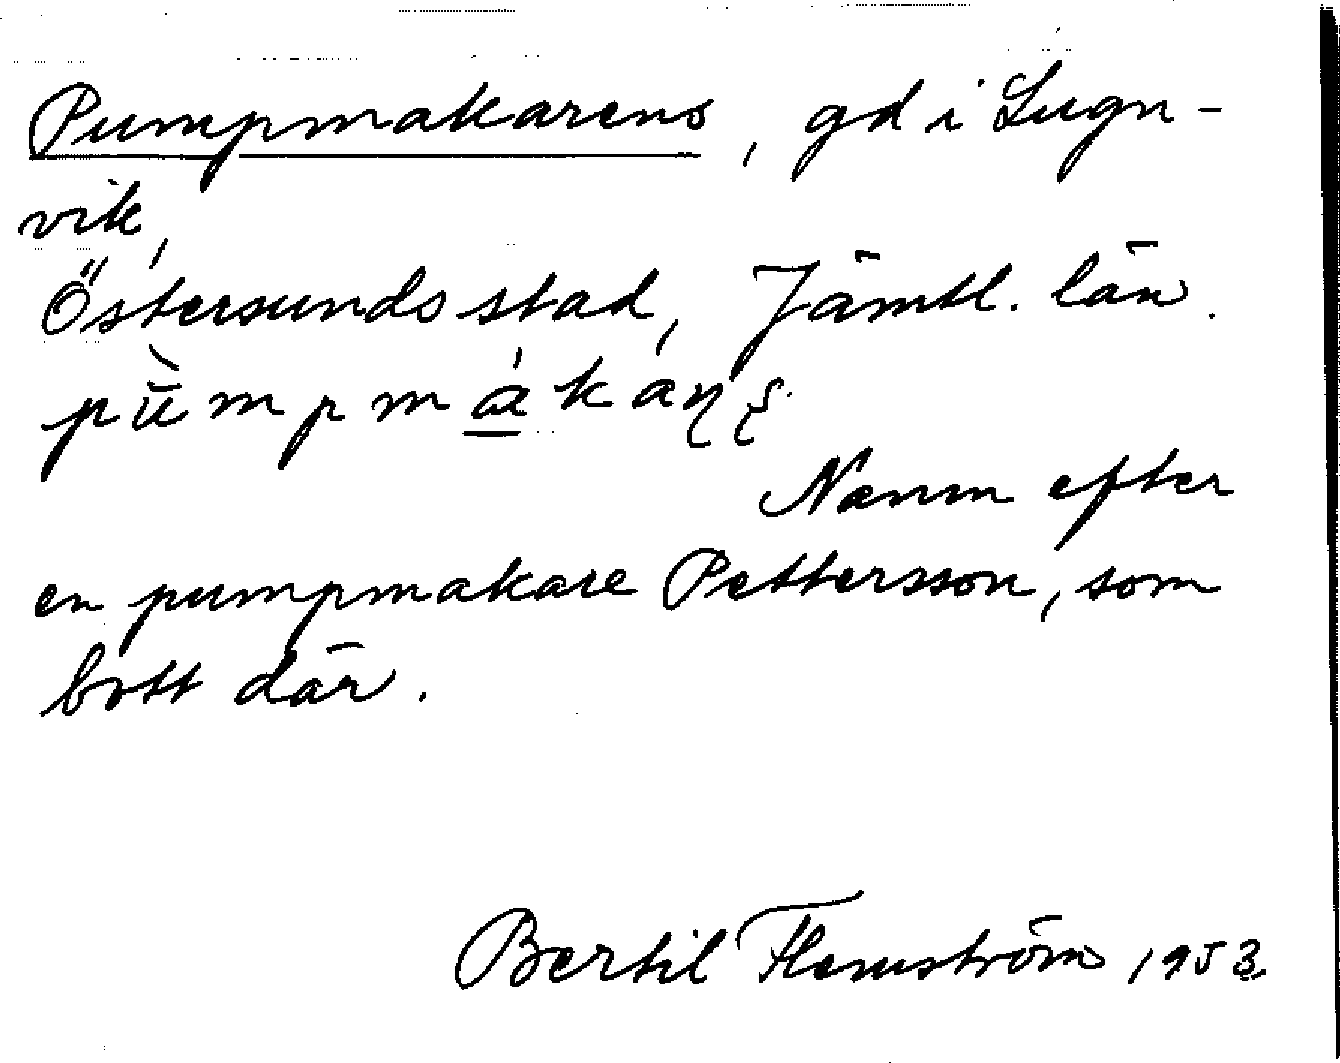 Pumpmakarens, gd i Lugn-
vik,
Östersunds stad, Jämtl. län.
pùmpmákaṇṣ
Namn efter
en pumpmakare Pettersson, som
bott där.
Bertil Flemström 1953